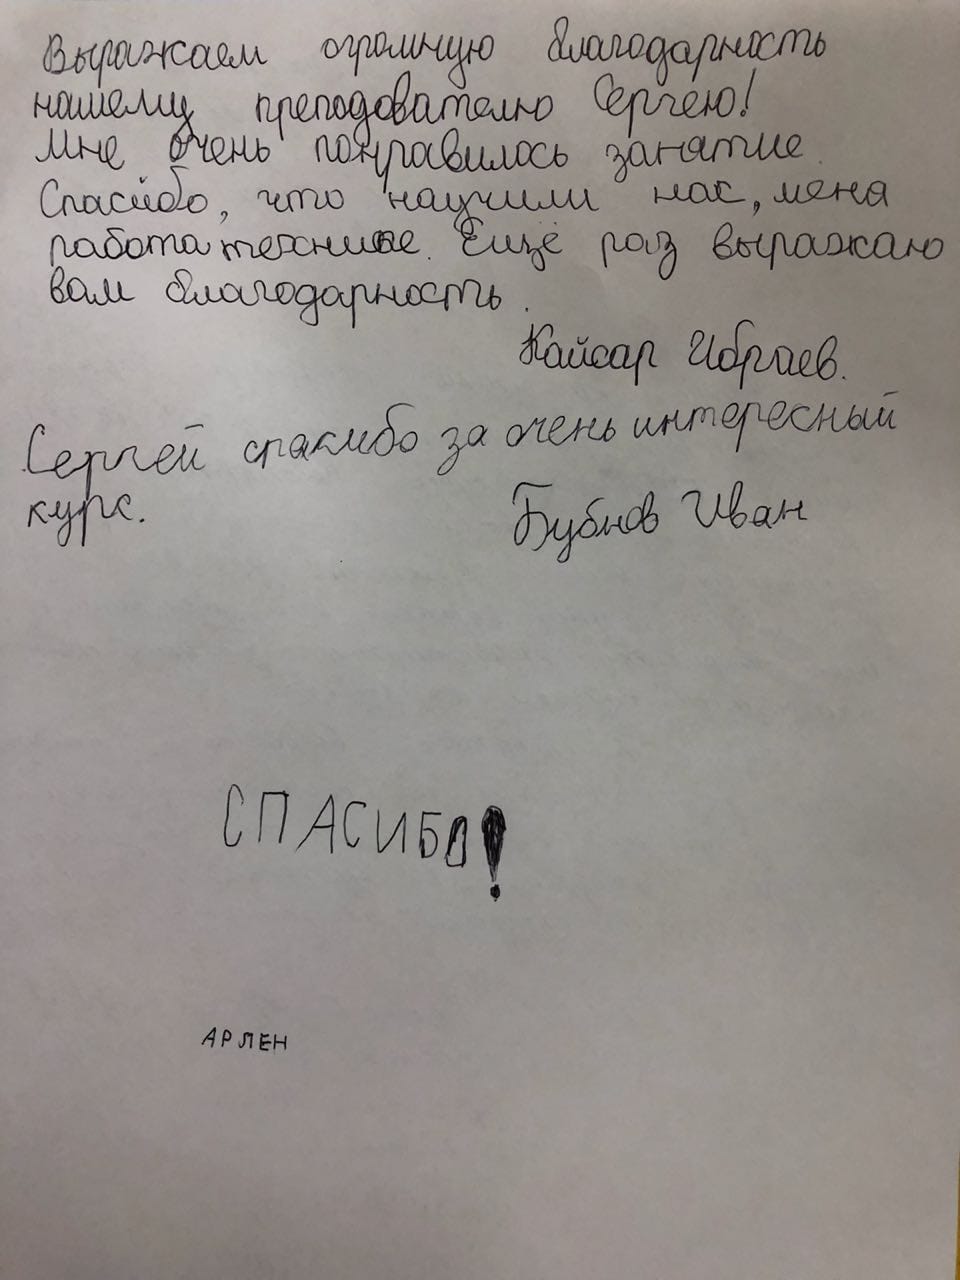 Выражаем огромную благодарность
нашему преподователю Сергею!
Мне очень понравилось занятие.
Спасибо, что научили нас, меня
работа технике. Ещё раз выражаю
вам благодарность.
Кайсар Ибраев.
Сергей спасибо за очень интересный
курс.
Бубнов Иван
СПАСИБО!
АРЛЕН